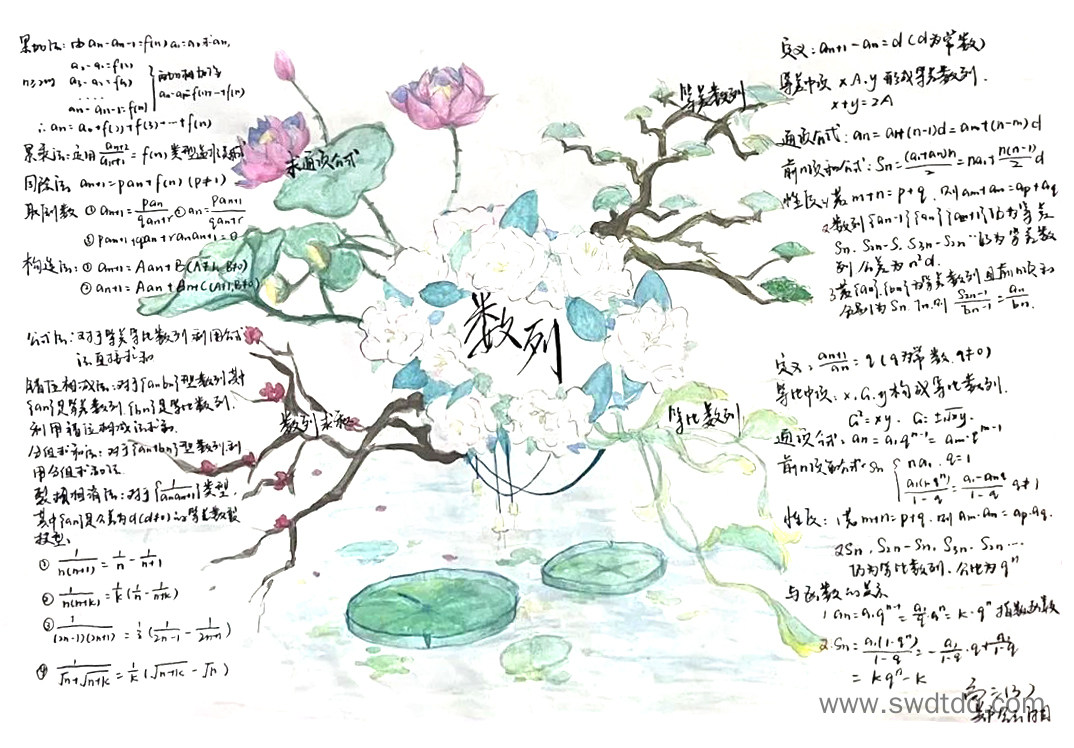 数列
求通项公式
累加法：由an-an-1=f(n) a1=a, 求an,
n≥2时
a2-a1=f(2)
a3-a2=f(3)
....
an-an-1=f(n)
两边相加得
an-a1=f(2)+…f(n)
∴an=a1+f(2)+f(3)+…+f(n)
an+1=pan+f(n) (p≠1)
取倒数 ① an+1=pan/(qan+r) ② an=pan+1/(qan+r)
③ pan+1+qan+ranan+1=0
构造法：① an+1=Aan+B(A≠1, B≠0)
数列求和
公式法：对于等差等比数列 利用公式
法直接求和
错位相减法：对于{anbn}型数列其中
{an}是等差数列，{bn}是等比数列，
利用错位相减法求和
分组求和法：对于{an±bn}型数列利
用分组求和法
裂项相消法：对于{1/anan+1}类型，
其中{an}是公差为d(d≠0)的等差数列
① 1/n(n+1)=1/n-1/(n+1)
② 1/n(n+k)=1/k(1/n-1/(n+k))
③ 1/(2n-1)(2n+1)=1/2(1/(2n-1)-1/(2n+1))
④ 1/(√n+√(n+k))=1/k(√(n+k)-√n)
等差数列
定义：an+1-an=d (d为常数)
等差中项 x.A.y 形成等差数列.
x+y=2A
通项公式：an=a1+(n-1)d=am+(n-m)d
前n项和公式：Sn=(a1+an)n/2=na1+n(n-1)/2 d
性质：1若m+n=p+q. 则am+an=ap+aq
Sn. S2n-Sn. S3n-S2n…仍为等差数
列 公差为n²d.
3若{an}.{bn}为等差数列且前n项和
分别为Sn. Tn. 则 S2n-1/T2n-1=an/bn.
等比数列
定义：an+1/an=q (q为常数, q≠0)
等比中项：x. G. y构成等比数列.
G²=xy. G=±√xy.
前n项和公式：Sn { na1. q=1
a1(1-qⁿ)/(1-q)=(a1-anq)/(1-q) q≠1
性质：1若m+n=p+q. 则 am·an=ap·aq.
2Sn. S2n-Sn. S3n-S2n…
仍为等比数列. 公比为qⁿ
与函数的关系
1 an=a1·qⁿ⁻¹=a1/q·qⁿ=k·qⁿ 指数函数
2.Sn=a1(1-qⁿ)/(1-q)=-a1/(1-q)·qⁿ+a1/(1-q)
=kqⁿ-k
www.swdtdq.com